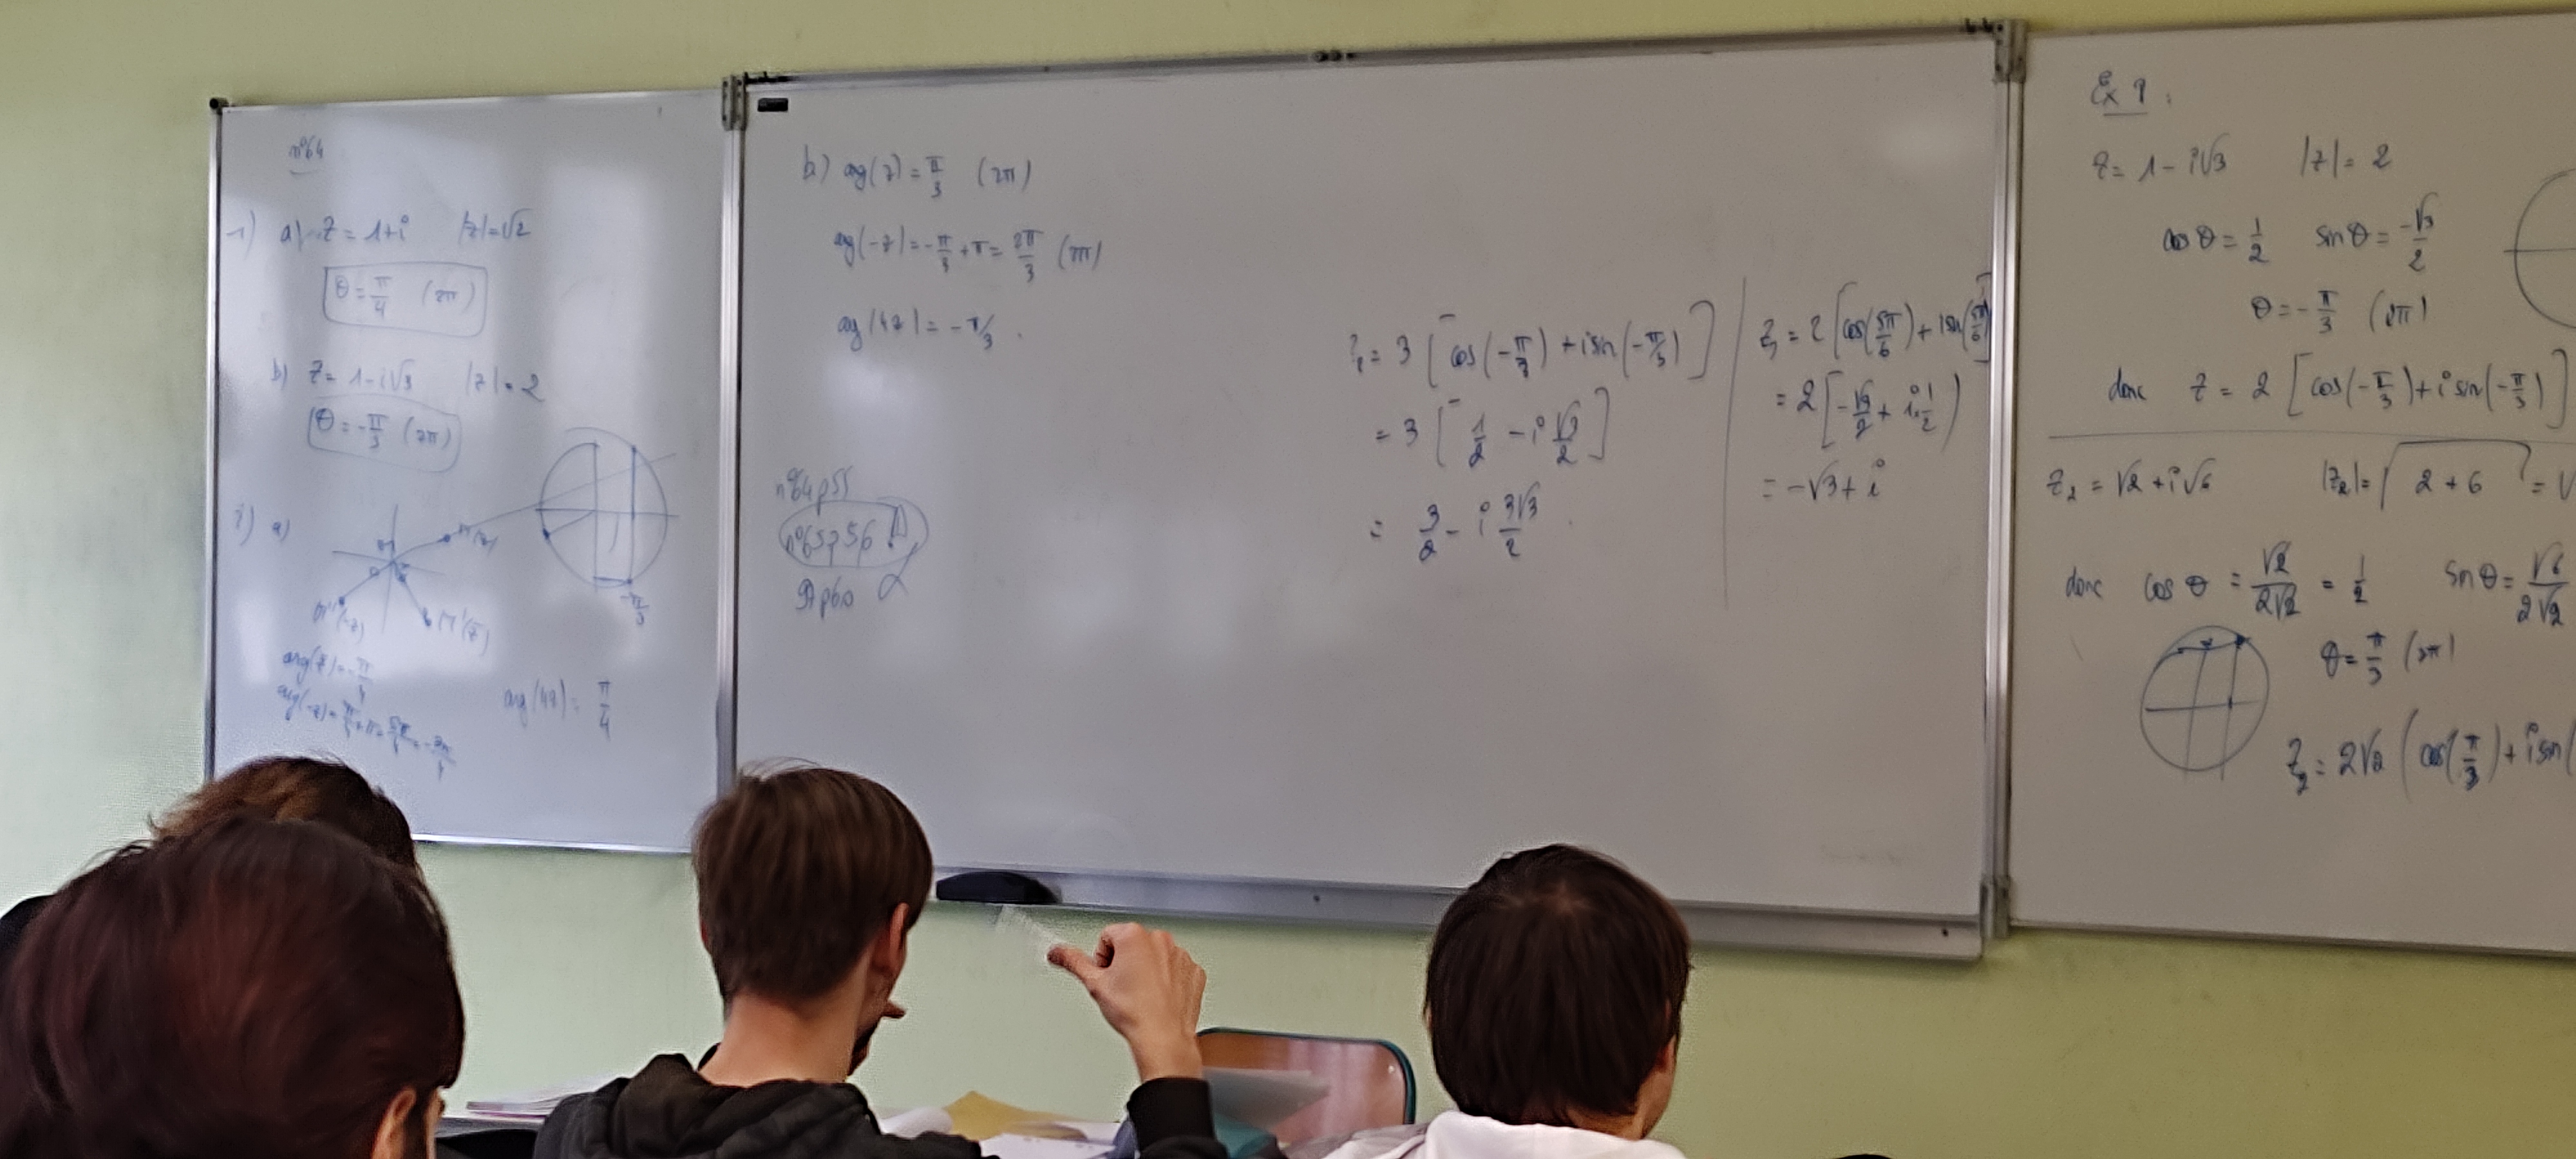 n°64
1) a) z = 1+i |z|=√2
θ = π/4 (2π)
b) z = 1-i√3 |z| = 2
θ = -π/3 (2π)
a)
M(z)
M''(-z)
M'(z̄)
-π/3
arg(z̄) = -π/4
arg(-z) = π/4+π = 5π/4 = -3π/4
arg(4z) = π/4
b) arg(z̄) = π/3 (2π)
arg(-z) = -π/3 + π = 2π/3 (2π)
arg(4z) = -π/3.
n°64p55
n°65p56
p60
z₁ = 3 [cos(-π/3) + i sin(-π/3)]
= 3 [1/2 - i √3/2]
= 3/2 - i 3√3/2
= 2 [cos(5π/6) + i sin(5π/6)]
= 2 [-√3/2 + i 1/2)
= -√3 + i
Ex 9 :
z = 1 - i√3 |z| = 2
cos θ = 1/2 sin θ = -√3/2
θ = -π/3 (2π)
donc z = 2 [cos(-π/3) + i sin(-π/3)]
z₂ = √2 + i√6 |z₂| = √2 + 6 = √
donc cos θ = √2/2√2 = 1/2 sin θ = √6/2√2
θ = π/3 (2π)
z₂ = 2√2 (cos(π/3) + i sin(